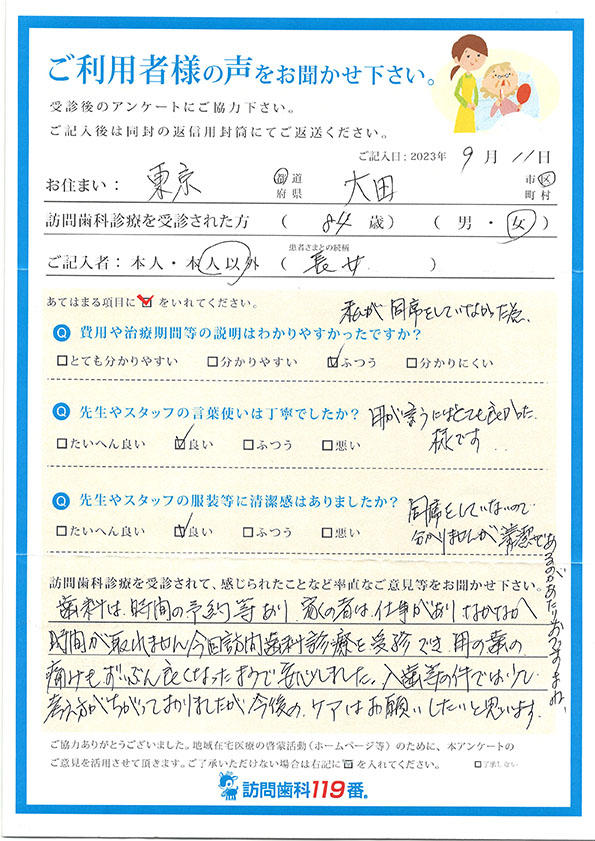 ご利用者様の声をお聞かせ下さい。
受診後のアンケートにご協力下さい。
ご記入後は同封の返信用封筒にてご返送ください。
ご記入日：2023年 9月 11日
お住まい： 東京 都道府県 大田 市区町村
訪問歯科診療を受診された方 （ 84 歳） （ 男 ・ 女 ）
患者さまとの続柄
ご記入者：本人・本人以外 （ 長女 ）
あてはまる項目に☑をいれてください。
私が同席をしていなかった為、
Q 費用や治療期間等の説明はわかりやすかったですか？
□とても分かりやすい □分かりやすい ☑ふつう □分かりにくい
Q 先生やスタッフの言葉使いは丁寧でしたか？
母が言うにはとても良かった
様です...
□たいへん良い ☑良い □ふつう □悪い
Q 先生やスタッフの服装等に清潔感はありましたか？
同席をしていないので
分かりませんが清潔で
あるのがあたりまえですよね、
□たいへん良い ☑良い □ふつう □悪い
訪問歯科診療を受診されて、感じられたことなど率直なご意見等をお聞かせ下さい。
歯科は、時間の予約等あり 家の者は、仕事がありなかなか
時間が取れません今回訪問歯科診療を受診でき、母の歯の
痛みもずいぶん良くなったようで安心しました。入歯等の件では少し
考え方がちがっておりましたが今後の、ケアはお願いしたいと思います。
ご協力ありがとうございました。地域在宅医療の啓蒙活動（ホームページ等）のために、本アンケートの
ご意見を活用させて頂きます。ご了承いただけない場合は右記に☑を入れてください。 □了承しない
訪問歯科119番®